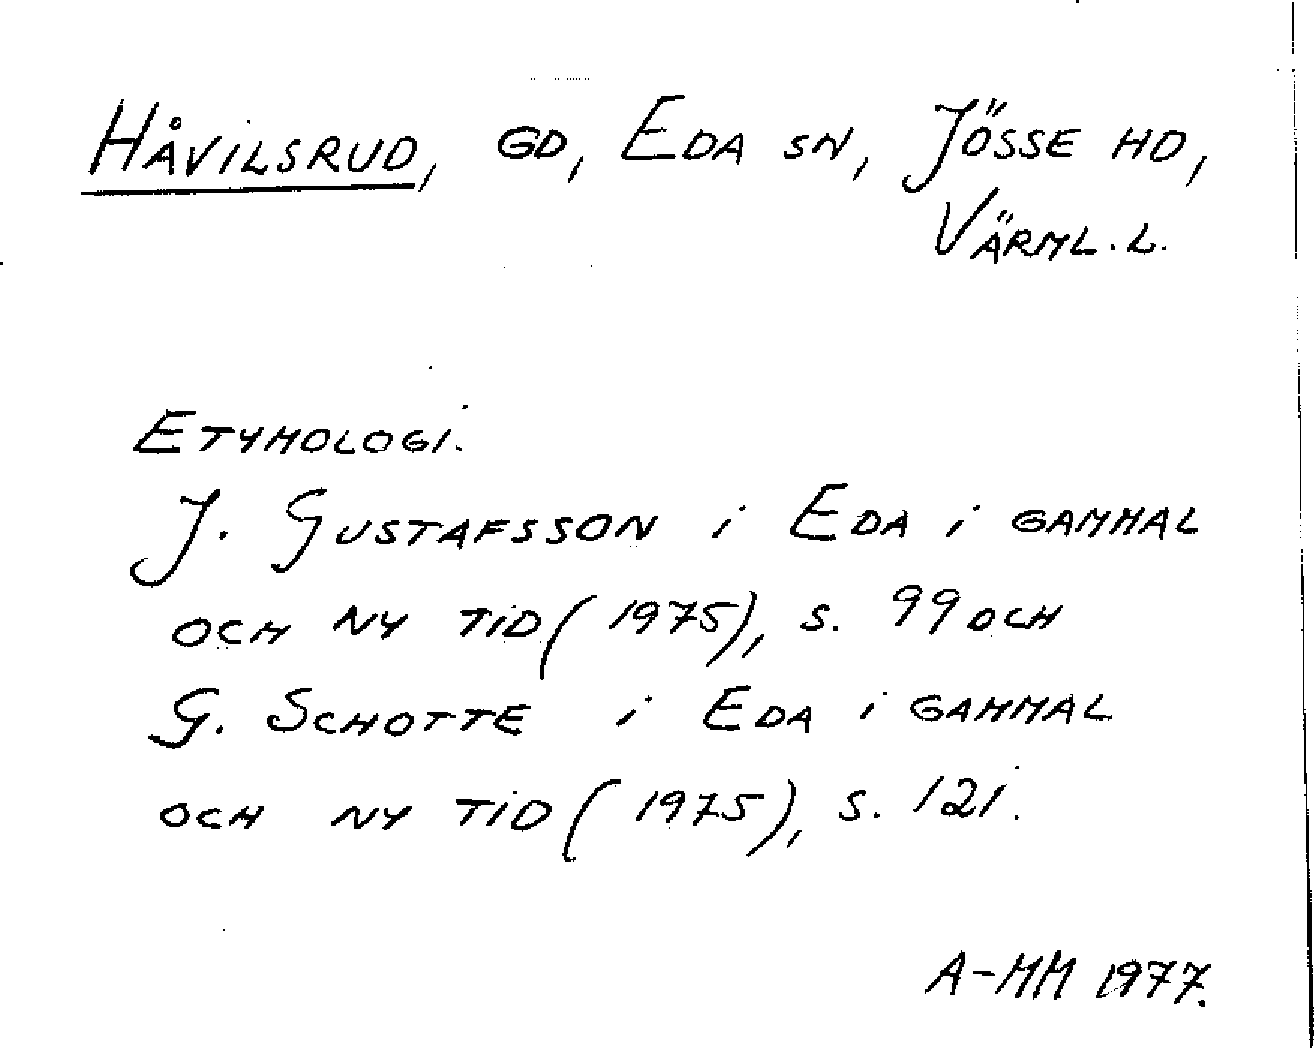 HÅVILSRUD, GD, EDA SN, JÖSSE HD,
VÄRML. L.
ETYMOLOGI.
J. GUSTAFSSON i EDA i GAMMAL
OCH NY TiD (1975), S. 99 OCH
G. SCHOTTE i EDA i GAMMAL
OCH NY TiD (1975), S. 121.
A-MM 1977.